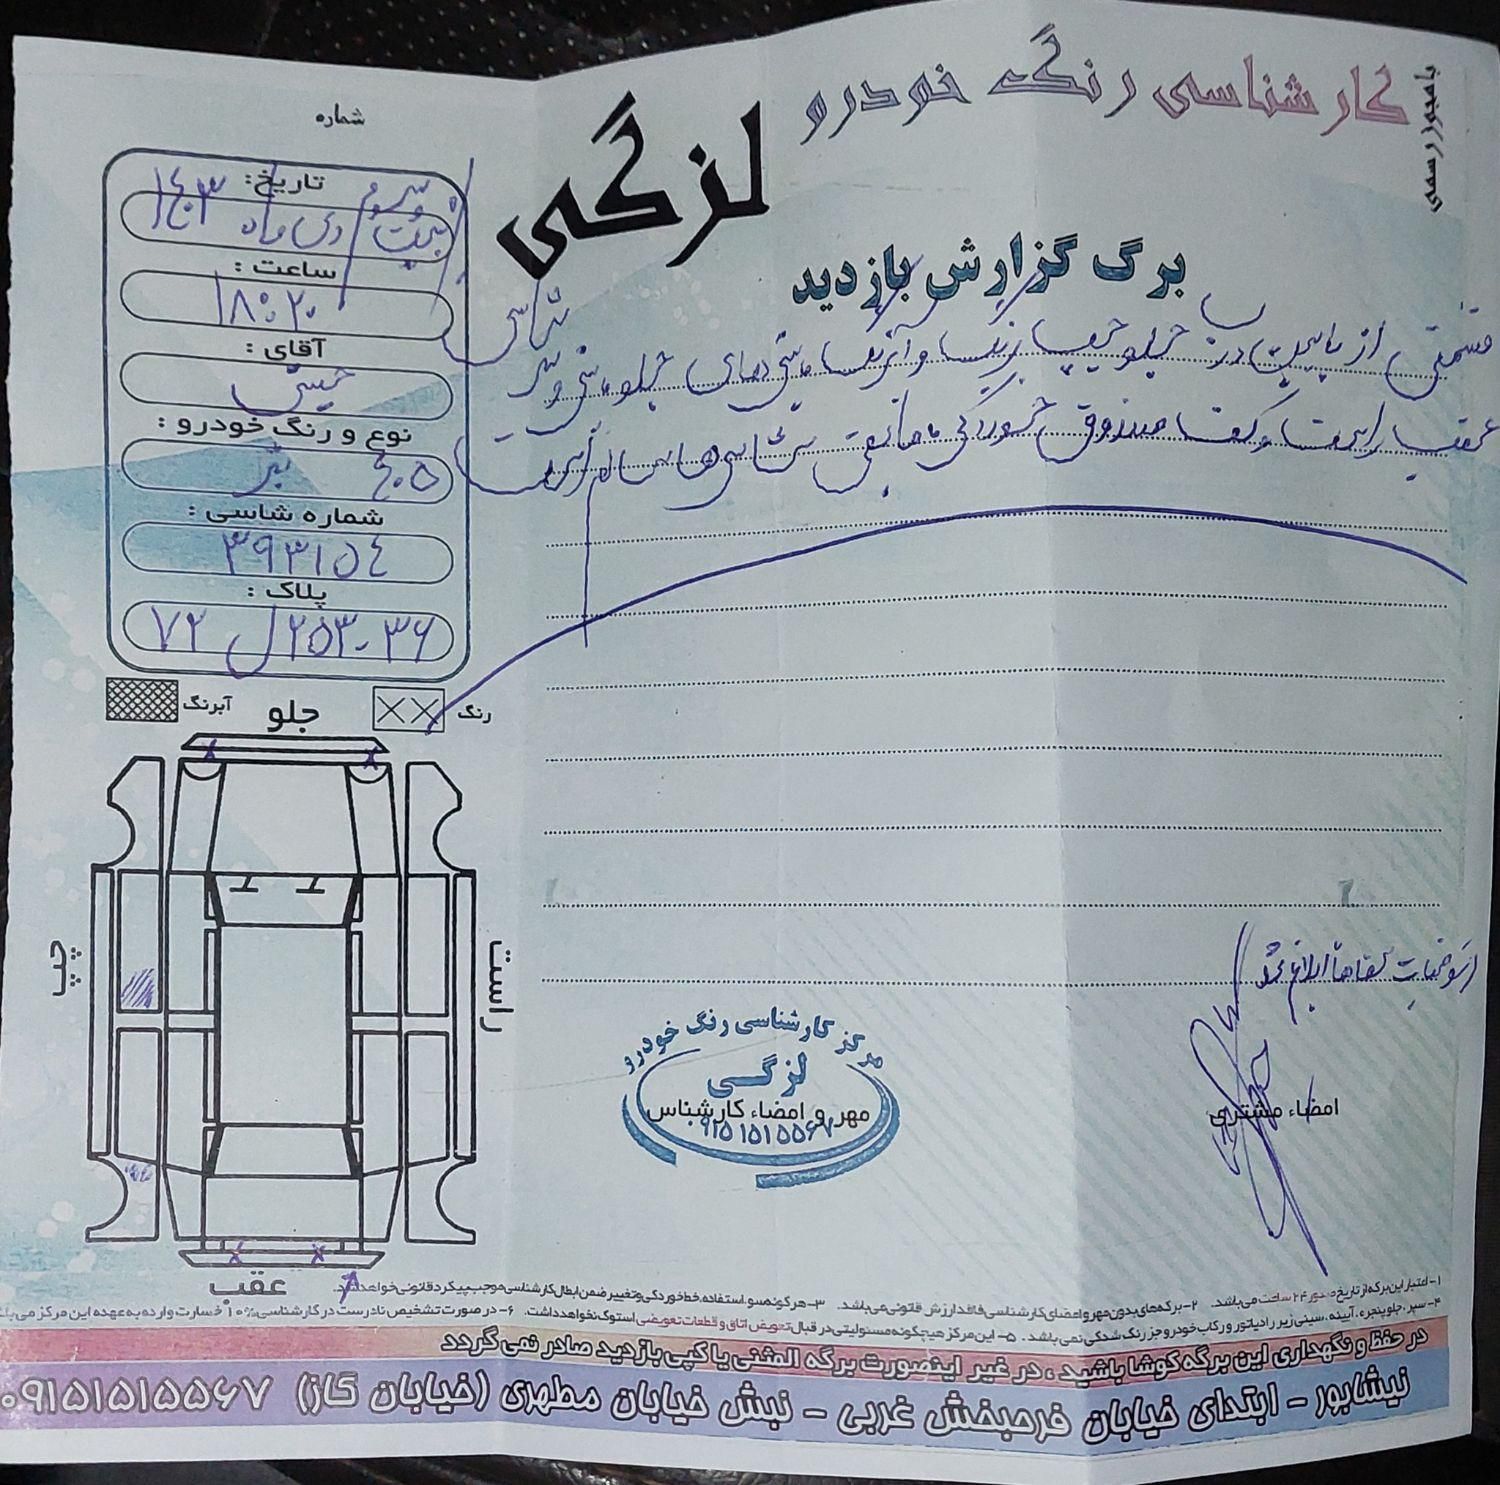 با مجوز رسمی
کارشناسی رنگ خودرو
لزگی
برگ گزارش بازدید
شماره
تاریخ:
بیست و سوم دی ماه ۱۴۰۳
ساعت:
۱۸:۲۰
آقای:
نوع و رنگ خودرو:
۴۰۵
شماره شاسی:
۳۹۳۱۵۴
پلاک:
۳۶-۲۵۳ ل ۷۲
قسمتی از پایین درب جلو چپ رنگ و آبرنگ سینی جلو
عقب راست و کف صندوق خوردگی مابقی شاسی‌ها سالم است
رنگ
آبرنگ
جلو
چپ
راست
عقب
از توضیحات شفاها ابلاغ شد
مرکز کارشناسی رنگ خودرو
لزگی
مهر و امضاء کارشناس
۰۹۱۵۱۵۱۵۵۶۷
امضاء مشتری
۱- اعتبار این برگه از تاریخ صدور ۲۴ ساعت می‌باشد. ۲- برگه‌های بدون مهر و امضای کارشناسی فاقد ارزش قانونی می‌باشد. ۳- هرگونه سو استفاده، خط‌خوردگی و تغییر ضمن ابطال کارشناسی موجب پیگرد قانونی خواهد شد.
۴- سپر، جلوپنجره، آیینه، سینی زیر رادیاتور و رکاب خودرو جز رنگ شدگی نمی باشد. ۵- این مرکز هیچگونه مسئولیتی در قبال تعویض اتاق و قطعات تعویضی استوک نخواهد داشت. ۶- در صورت تشخیص نادرست در کارشناسی ۱۰٪ خسارت وارده به عهده این مرکز می‌باشد
در حفظ و نگهداری این برگه کوشا باشید، در غیر اینصورت برگه المثنی یا کپی بازدید صادر نمی گردد
نیشابور - ابتدای خیابان فرحبخش غربی - نبش خیابان مطهری (خیابان گاز) ۰۹۱۵۱۵۱۵۵۶۷